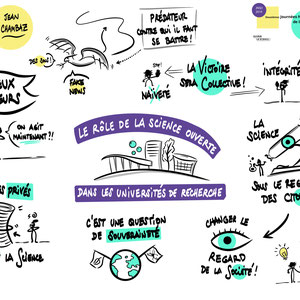 JEAN
CHAMBAZ
PRÉDATEUR
CONTRE QUI IL FAUT
SE BATTRE!
FAKE
NEWS
NAÏVETÉ
LA VICTOIRE
SERA COLLECTIVE!
INTÉGRITÉ
EUX
EURS
ON AGIT
MAINTENANT?!
LE RÔLE DE LA SCIENCE OUVERTE
DANS LES UNIVERSITÉS DE RECHERCHE
LA
SCIENCE
SOUS LE REG
DES CITO
S PRIVÉS
LA SCIENCE
C'EST UNE QUESTION
DE SOUVERAINETÉ
CHANGER LE
REGARD
DE LA SOCIÉTÉ!